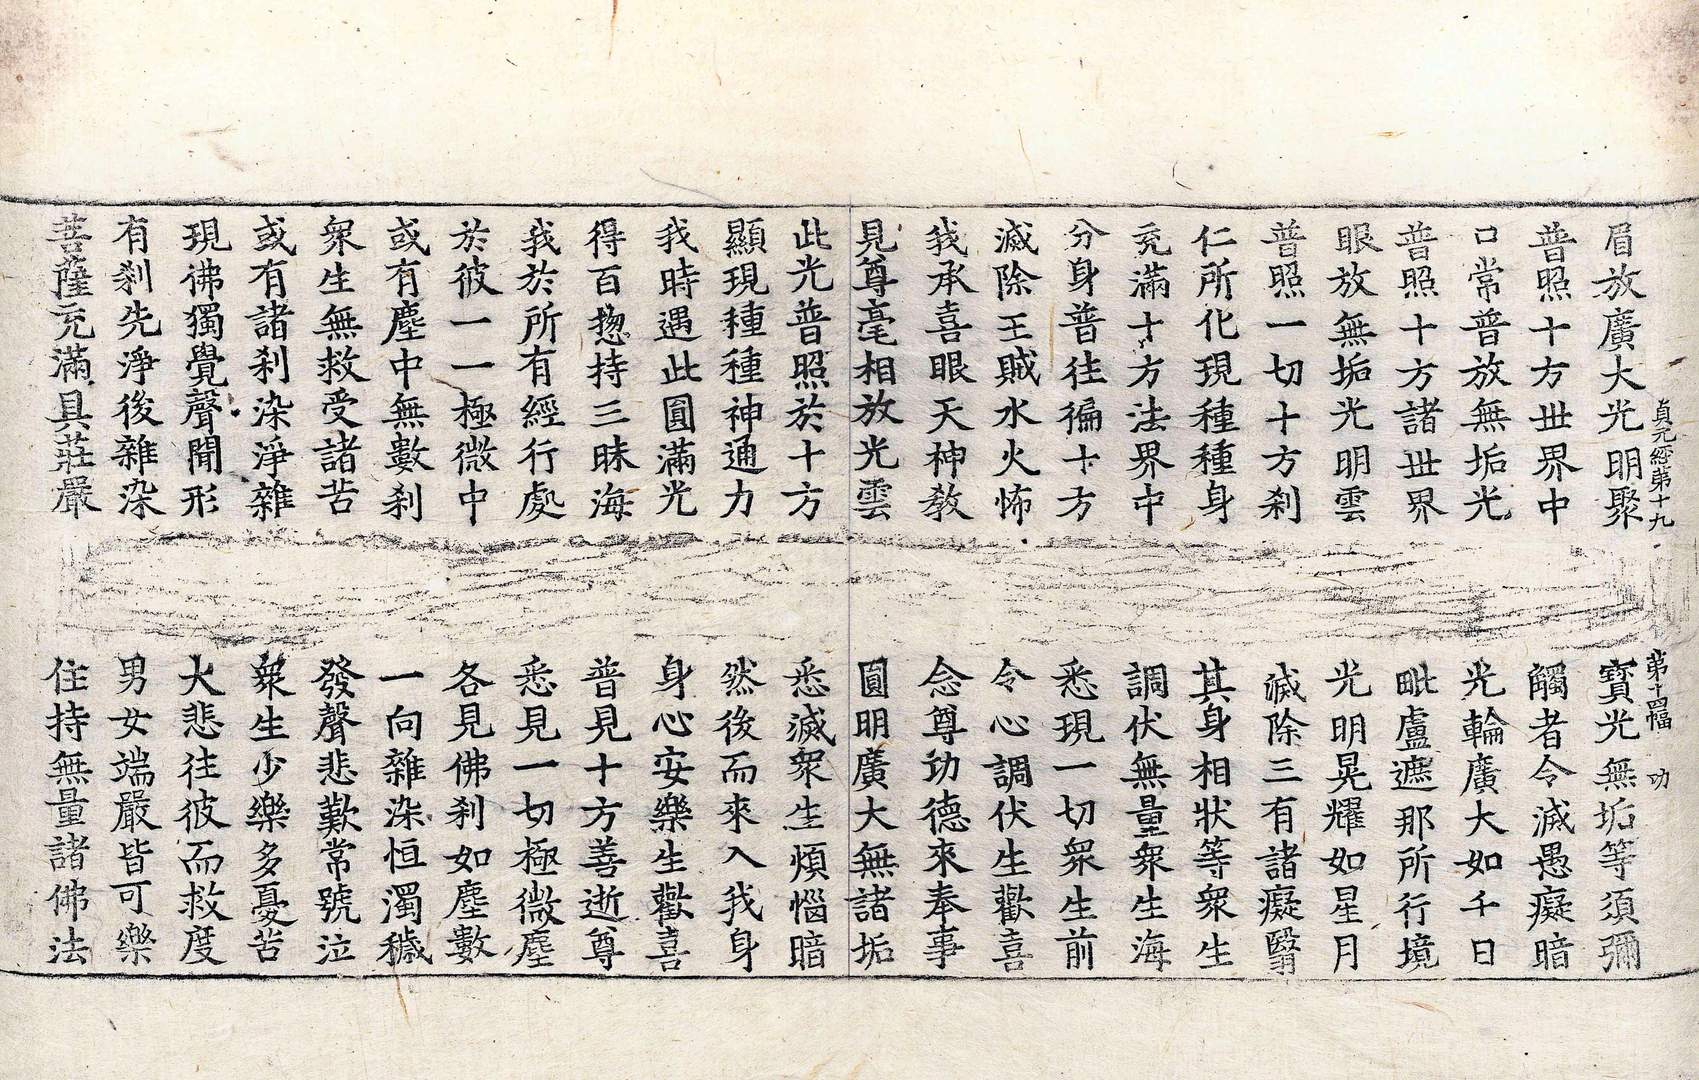 貞元經第十九　第十四幅　功
眉放廣大光明聚　寶光無垢等須彌
普照十方世界中　觸者令滅愚癡暗
口常普放無垢光　光輪廣大如千日
普照十方諸世界　毗盧遮那所行境
眼放無垢光明雲　光明晃耀如星月
普照一切十方刹　滅除三有諸癡翳
仁所化現種種身　其身相狀等衆生
充滿十方法界中　調伏無量衆生海
分身普往徧十方　悉現一切衆生前
滅除王賊水火怖　令心調伏生歡喜
我承喜眼天神教　念尊功德來奉事
見尊毫相放光雲　圓明廣大無諸垢
此光普照於十方　悉滅衆生煩惱暗
顯現種種神通力　然後而來入我身
我時遇此圓滿光　身心安樂生歡喜
得百揔持三昧海　普見十方善逝尊
我於所有經行處　悉見一切極微塵
於彼一一極微中　各見佛刹如塵數
或有塵中無數刹　一向雜染恒濁穢
衆生無救受諸苦　發聲悲歎常號泣
或有諸刹染淨雜　衆生少樂多憂苦
現佛獨覺聲聞形　大悲往彼而救度
有刹先淨後雜染　男女端嚴皆可樂
菩薩充滿具莊嚴　住持無量諸佛法